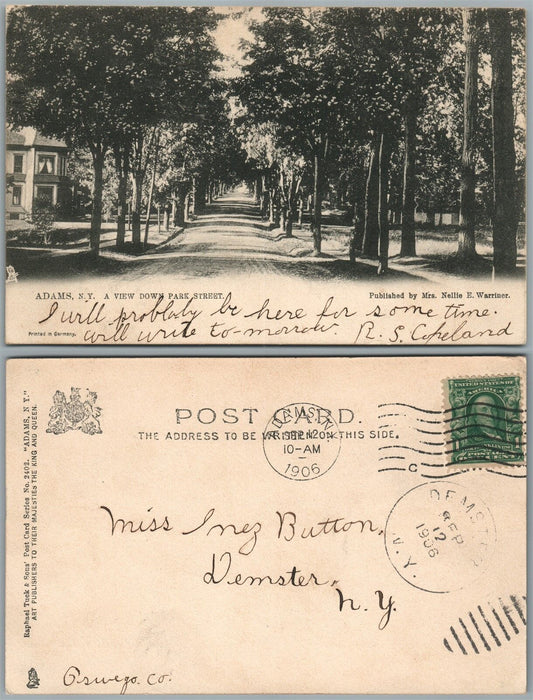 ADAMS, N.Y. A VIEW DOWN PARK STREET.
Published by Mrs. Nellie E. Warriner.
I will problably be here for some time.
Printed in Germany.
will write to-morrow. R. S. Copeland
Raphael Tuck & Sons' Post Card Series No. 2402. "ADAMS, N. Y."
ART PUBLISHERS TO THEIR MAJESTIES THE KING AND QUEEN.
POST CARD.
THE ADDRESS TO BE WRITTEN ON THIS SIDE.
ADAMS, N.Y.
SEP 12
10-AM
1906
C
UNITED STATES OF
AMERICA
FRANKLIN
DEMSTER
SEP
12
1906
N. Y.
Miss Inez Button,
Demster,
N.Y.
Oswego. Co.